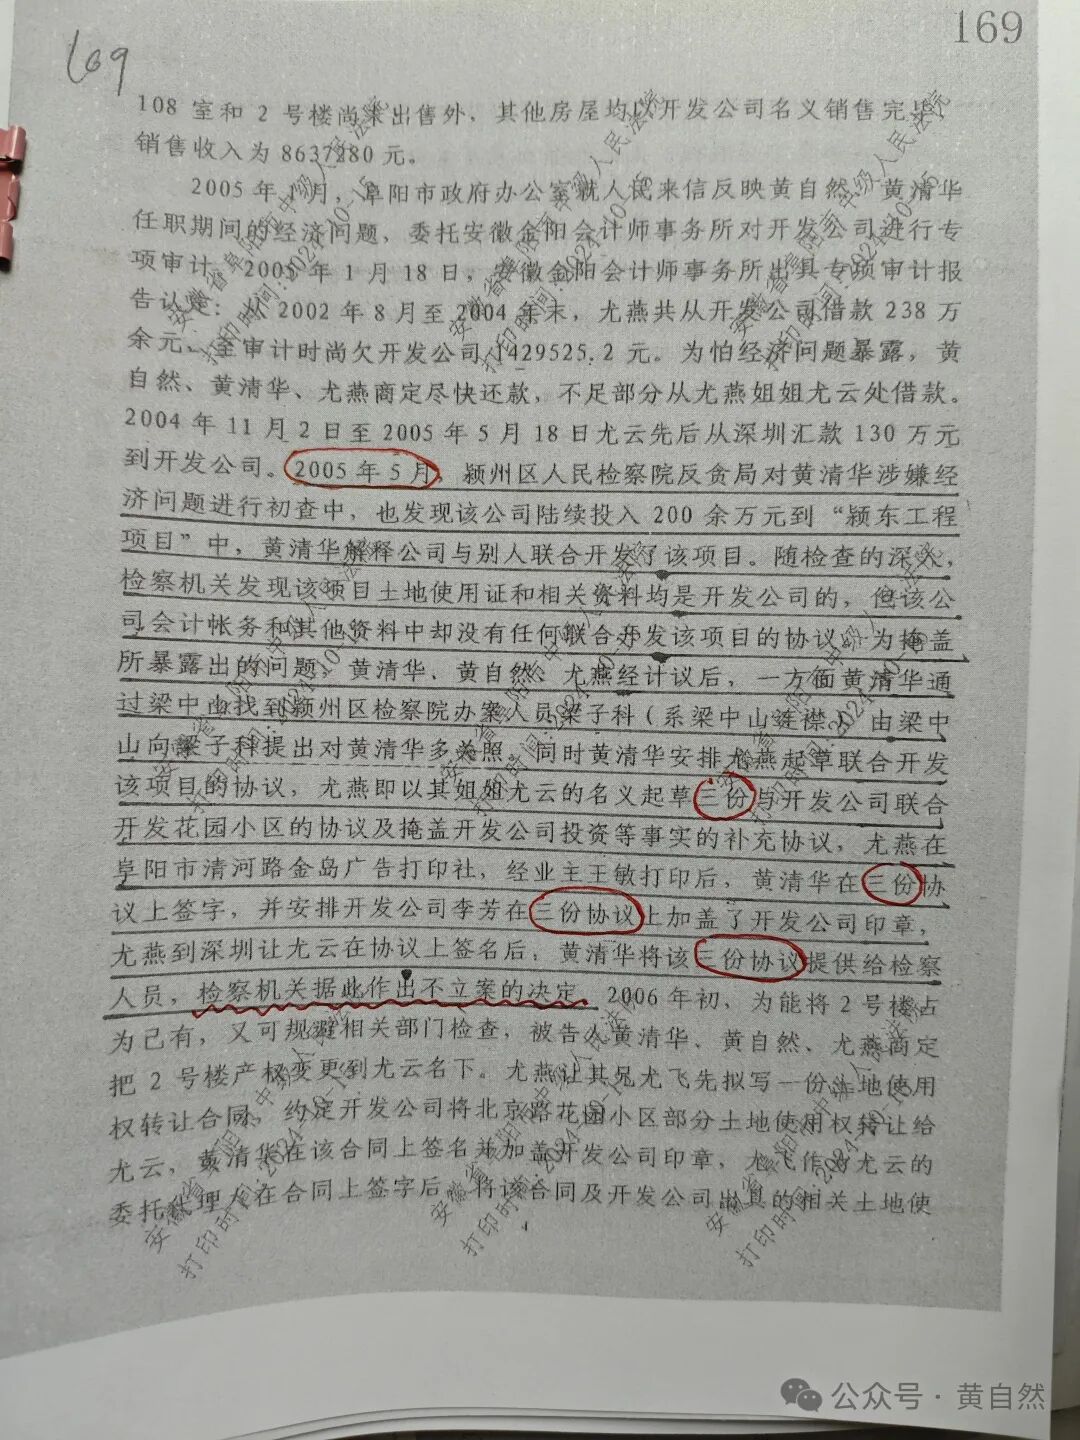 169
169
108 室和 2 号楼尚未出售外，其他房屋均以开发公司名义销售完毕，
销售收入为 8637280 元。
2005 年 1 月，阜阳市政府办公室就人民来信反映黄自然、黄清华
任职期间的经济问题，委托安徽金阳会计师事务所对开发公司进行专
项审计。2005 年 1 月 18 日，安徽金阳会计师事务所出具专项审计报
告认定：从 2002 年 8 月至 2004 年末，尤燕共从开发公司借款 238 万
余元，至审计时尚欠开发公司 1429525.2 元。为怕经济问题暴露，黄
自然、黄清华、尤燕商定尽快还款，不足部分从尤燕姐姐尤云处借款。
2004 年 11 月 2 日至 2005 年 5 月 18 日尤云先后从深圳汇款 130 万元
到开发公司。2005 年 5 月，颍州区人民检察院反贪局对黄清华涉嫌经
济问题进行初查中，也发现该公司陆续投入 200 余万元到“颍东工程
项目”中，黄清华解释公司与别人联合开发了该项目。随检查的深入，
检察机关发现该项目土地使用证和相关资料均是开发公司的，但该公
司会计帐务和其他资料中却没有任何联合开发该项目的协议。为掩盖
所暴露出的问题，黄清华、黄自然、尤燕经计议后，一方面黄清华通
过梁中山找到颍州区检察院办案人员梁子科（系梁中山连襟），由梁中
山向梁子科提出对黄清华多关照，同时黄清华安排尤燕起草联合开发
该项目的协议，尤燕即以其姐姐尤云的名义起草三份与开发公司联合
开发花园小区的协议及掩盖开发公司投资等事实的补充协议，尤燕在
阜阳市清河路金岛广告打印社，经业主王敏打印后，黄清华在三份协
议上签字，并安排开发公司李芳在三份协议上加盖了开发公司印章，
尤燕到深圳让尤云在协议上签名后，黄清华将该三份协议提供给检察
人员，检察机关据此作出不立案的决定。2006 年初，为能将 2 号楼占
为已有，又可规避相关部门检查，被告人黄清华、黄自然、尤燕商定
把 2 号楼产权变更到尤云名下。尤燕让其兄尤飞先拟写一份土地使用
权转让合同，约定开发公司将北京路花园小区部分土地使用权转让给
尤云，黄清华在该合同上签名并加盖开发公司印章，尤飞作为尤云的
委托代理人在合同上签字后，将该合同及开发公司出具的相关土地使
公众号·黄自然